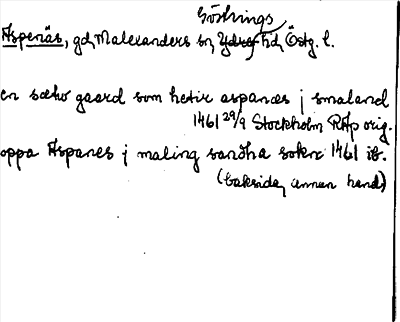 Göstrings
Aspenäs, gd, Malexanders sn, Ydref hd, Östg. l.
en sætho gaard som hetir aspanæs j smaland
1461 29/9 Stockholm RAp orig.
oppa Aspanes j maling sandha sokn 1461 ib.
(baksida, annan hand)